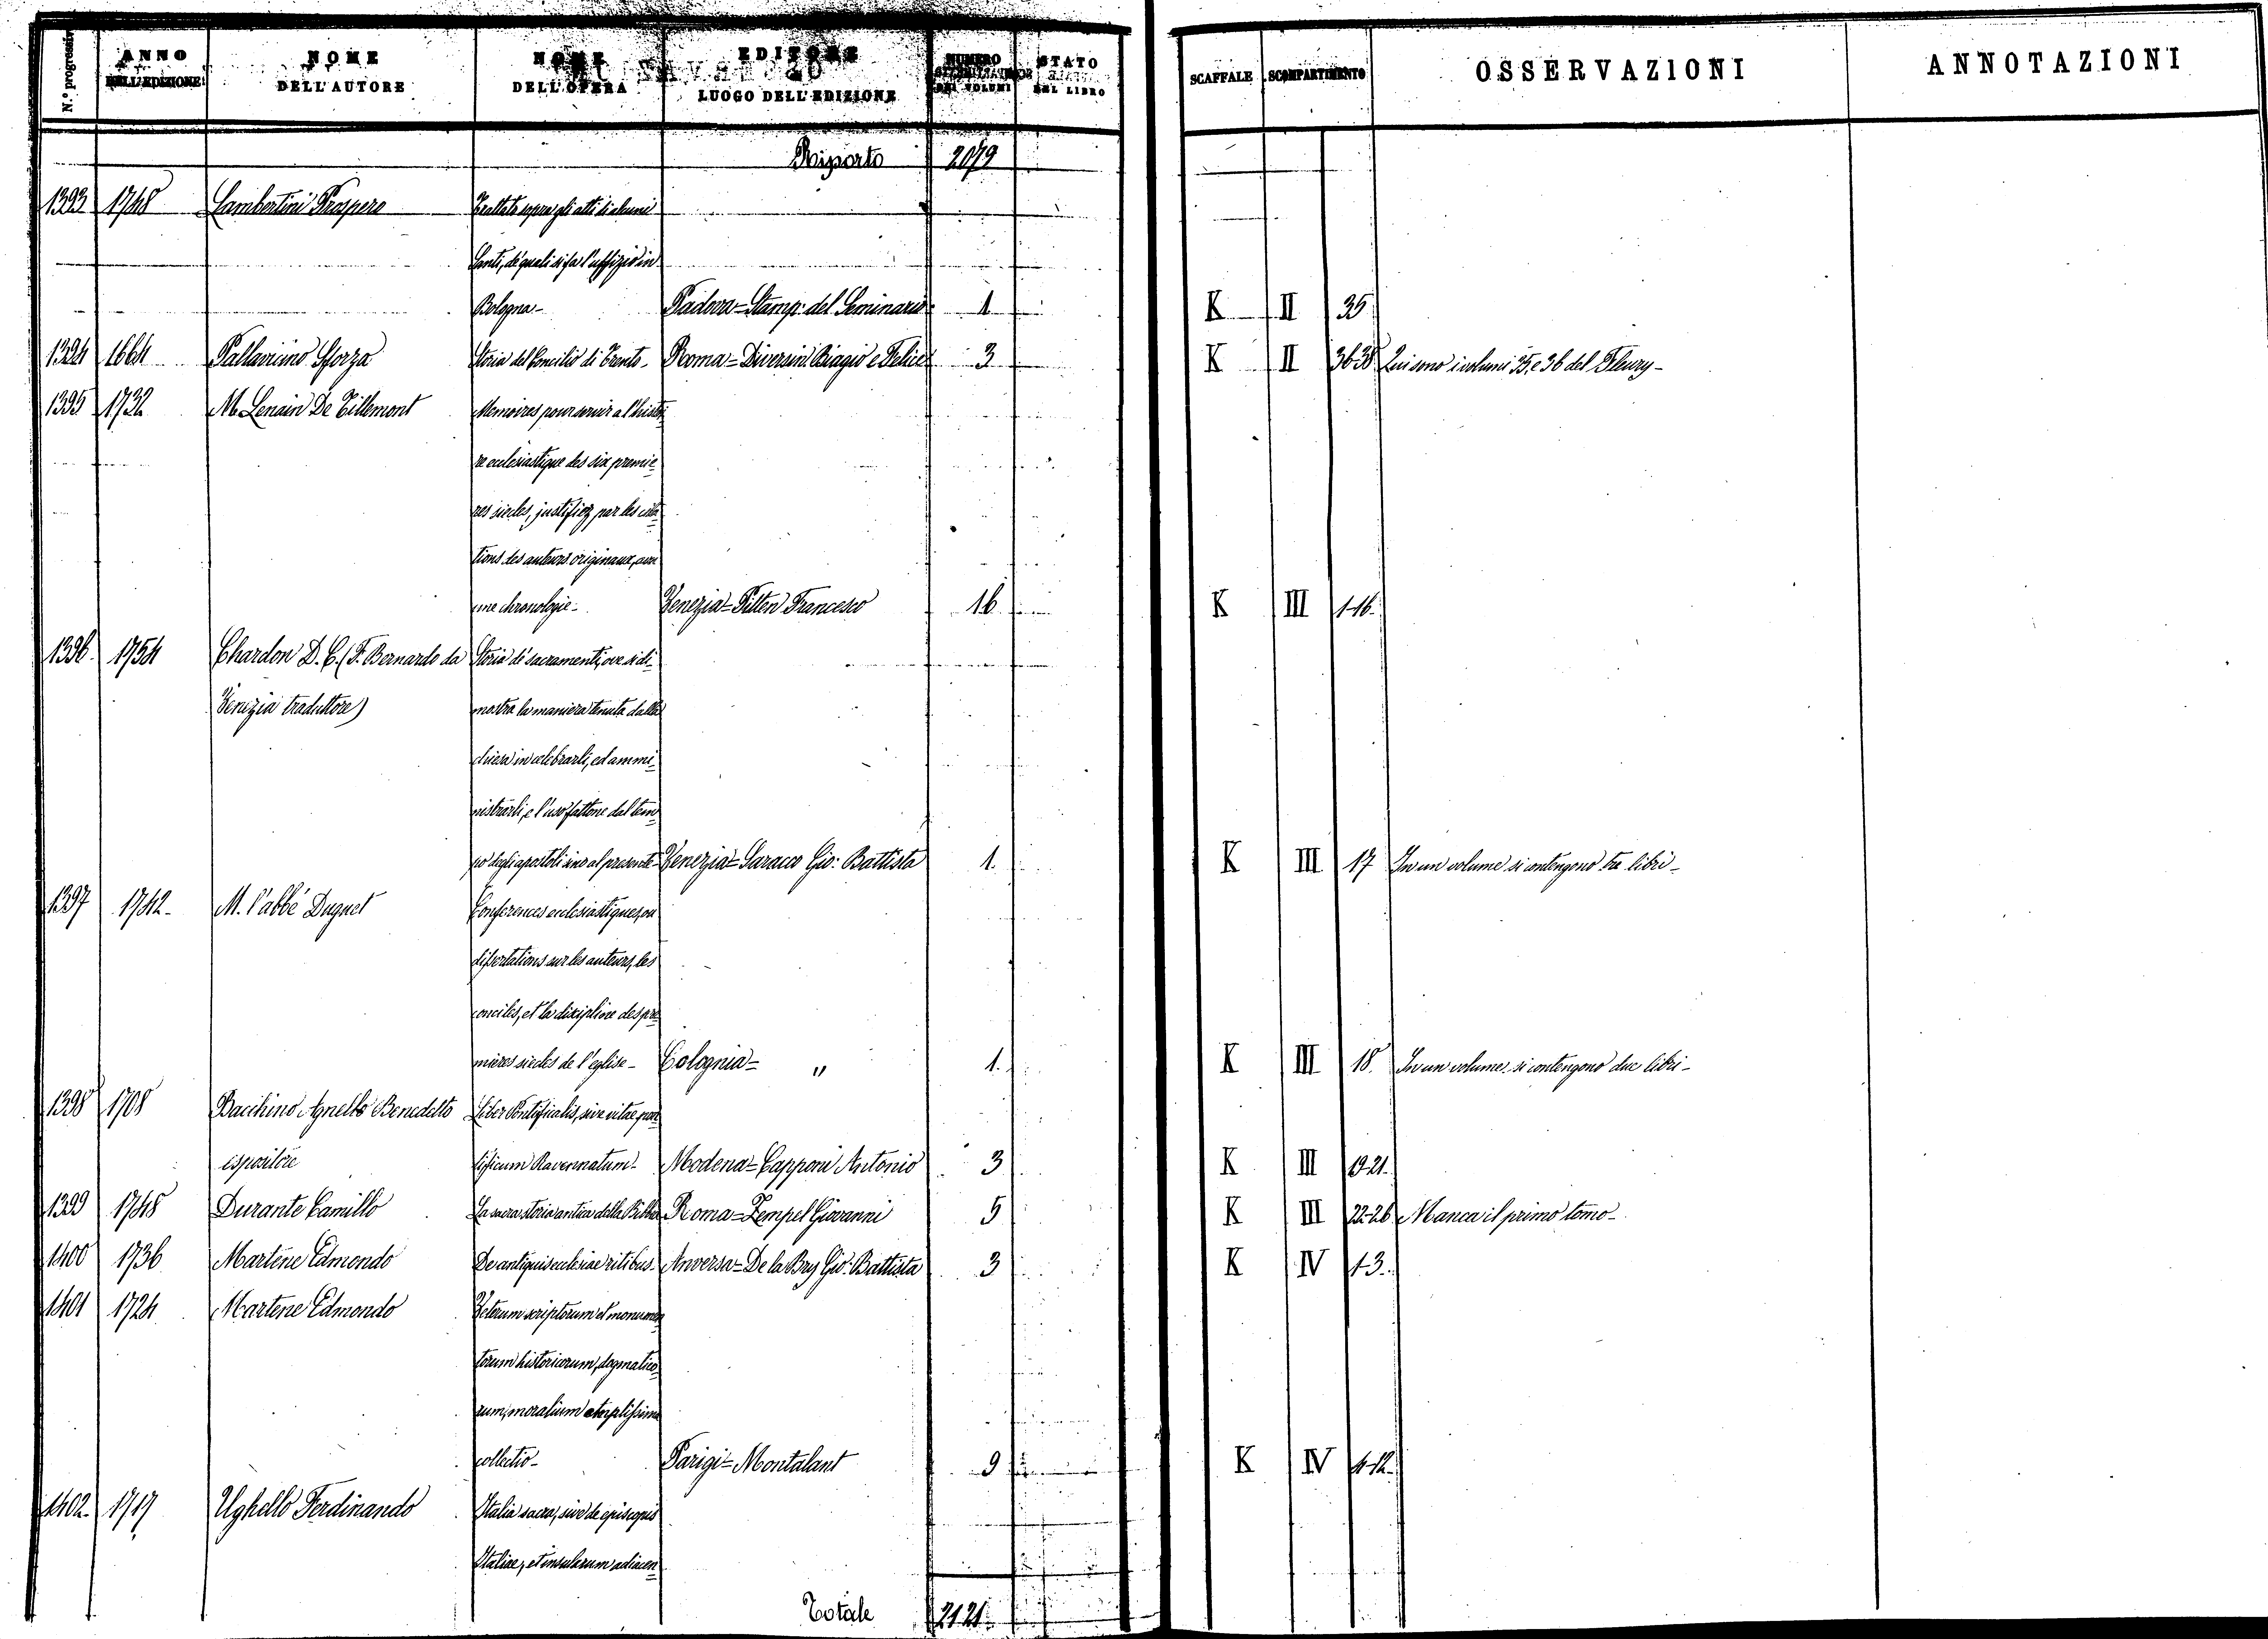 N.° progressivo
ANNO DELL'EDIZIONE
NOME DELL'AUTORE
NOME DELL'OPERA
EDITORE LUOGO DELL'EDIZIONE
NUMERO DEI VOLUMI
STATO DEL LIBRO
SCAFFALE
SCOMPARTIMENTO
OSSERVAZIONI
ANNOTAZIONI
Riporto 2079
1393 1748 Lambertini Prospero Trattato sopra gli atti di alcuni
Santi, de' quali si fa l'uffizio in
Bologna- Padova=Stamp. del Seminario 1 K II 35
1394 1664 Pallavicino Sforza Storia del Concilio di Trento- Roma=Diversin Biagio e Felice 3 K II 36-38 Qui sono i volumi 35, e 36 del Fleury-
1395 1732 M. Lenain De Tillemont Memoires pour servir a l'histoi
re ecclesiastique des six premie
res siecles, justifiez par les cita
tions des auteurs originaux, avec
une chronologie- Venezia=Pitteri Francesco 16 K III 1-16.
1396. 1754 Chardon D. C. (F. Bernardo da Storia de' sacramenti, ove si di
Venezia traduttore) mostra la maniera tenuta dalla
chiesa in celebrarli, ed ammi
nistrarli, e l'uso fattone dal tem
po degli apostoli sino al presente- Venezia=Saracco Gio: Battista 1. K III 17 In un volume si contengono tre libri-
1397 1742- M. l'abbé Duguet Conferences ecclesiastiques, ou
dissertations sur les auteurs, les
conciles, et la discipline des pre
mieres siecles de l'eglise- Colognia= " 1. K III 18. In un volume si contengono due libri-
1398 1708 Bacchino Agnello Benedetto Liber Pontificalis, sive vitae pon
espositore tificum Ravennatum- Modena=Capponi Antonio 3 K III 19-21.
1399 1748 Durante Camillo La sacra storia antica della Bibbia Roma=Zempel Giovanni 5 K III 22-26 Manca il primo tomo-
1400 1736 Martène Edmondo De antiquis ecclesiae ritibus- Anversa=De la Bry Gio: Battista 3 K IV 1-3.
1401 1724 Martene Edmondo Veterum scriptorum et monumen
torum historicorum, dogmatico
rum, moralium amplissima
collectio- Parigi=Montalant 9 K IV 4-12.
1402- 1717 Ughello Ferdinando Italia sacra, sive de episcopis
Italiae, et insularum adiacen
Totale 2121.